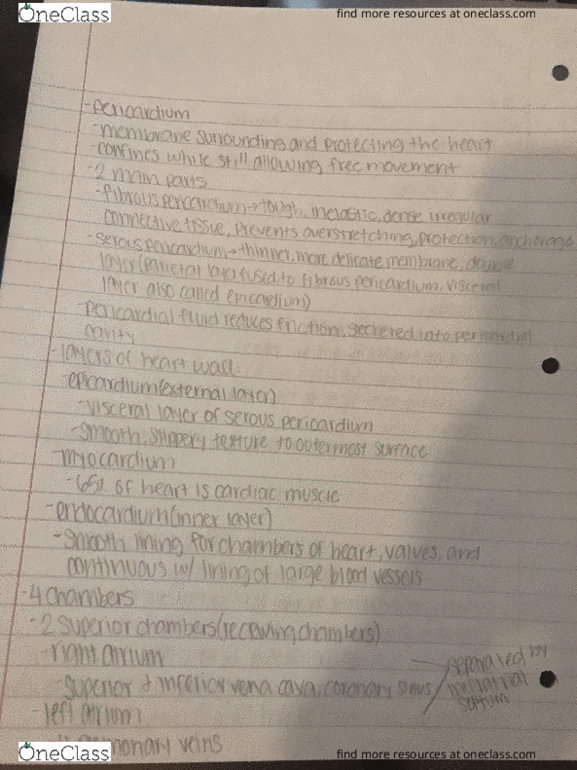 OneClass
find more resources at oneclass.com
-pericardium
-membrane surrounding and protecting the heart
-confines while still allowing free movement
-2 main parts
-fibrous pericardium→tough, inelastic, dense irregular
connective tissue, prevents overstretching, protection, anchorage
-serous pericardium→thinner, more delicate membrane, double
layer (parietal layer fused to fibrous pericardium, visceral
layer also called epicardium)
-pericardial fluid reduces friction, secreted into pericardial
cavity
-layers of heart wall:
-epicardium (external layer)
-visceral layer of serous pericardium
-smooth, slippery texture to outermost surface
-myocardium
-95% of heart is cardiac muscle
-endocardium (inner layer)
-smooth lining for chambers of heart, valves, and
continuous w/ lining of large blood vessels
-4 chambers
-2 superior chambers (receiving chambers)
-right atrium
-superior & inferior vena cava, coronary sinus
separated by
interatrial
septum
-left atrium
pulmonary veins
OneClass
find more resources at oneclass.com